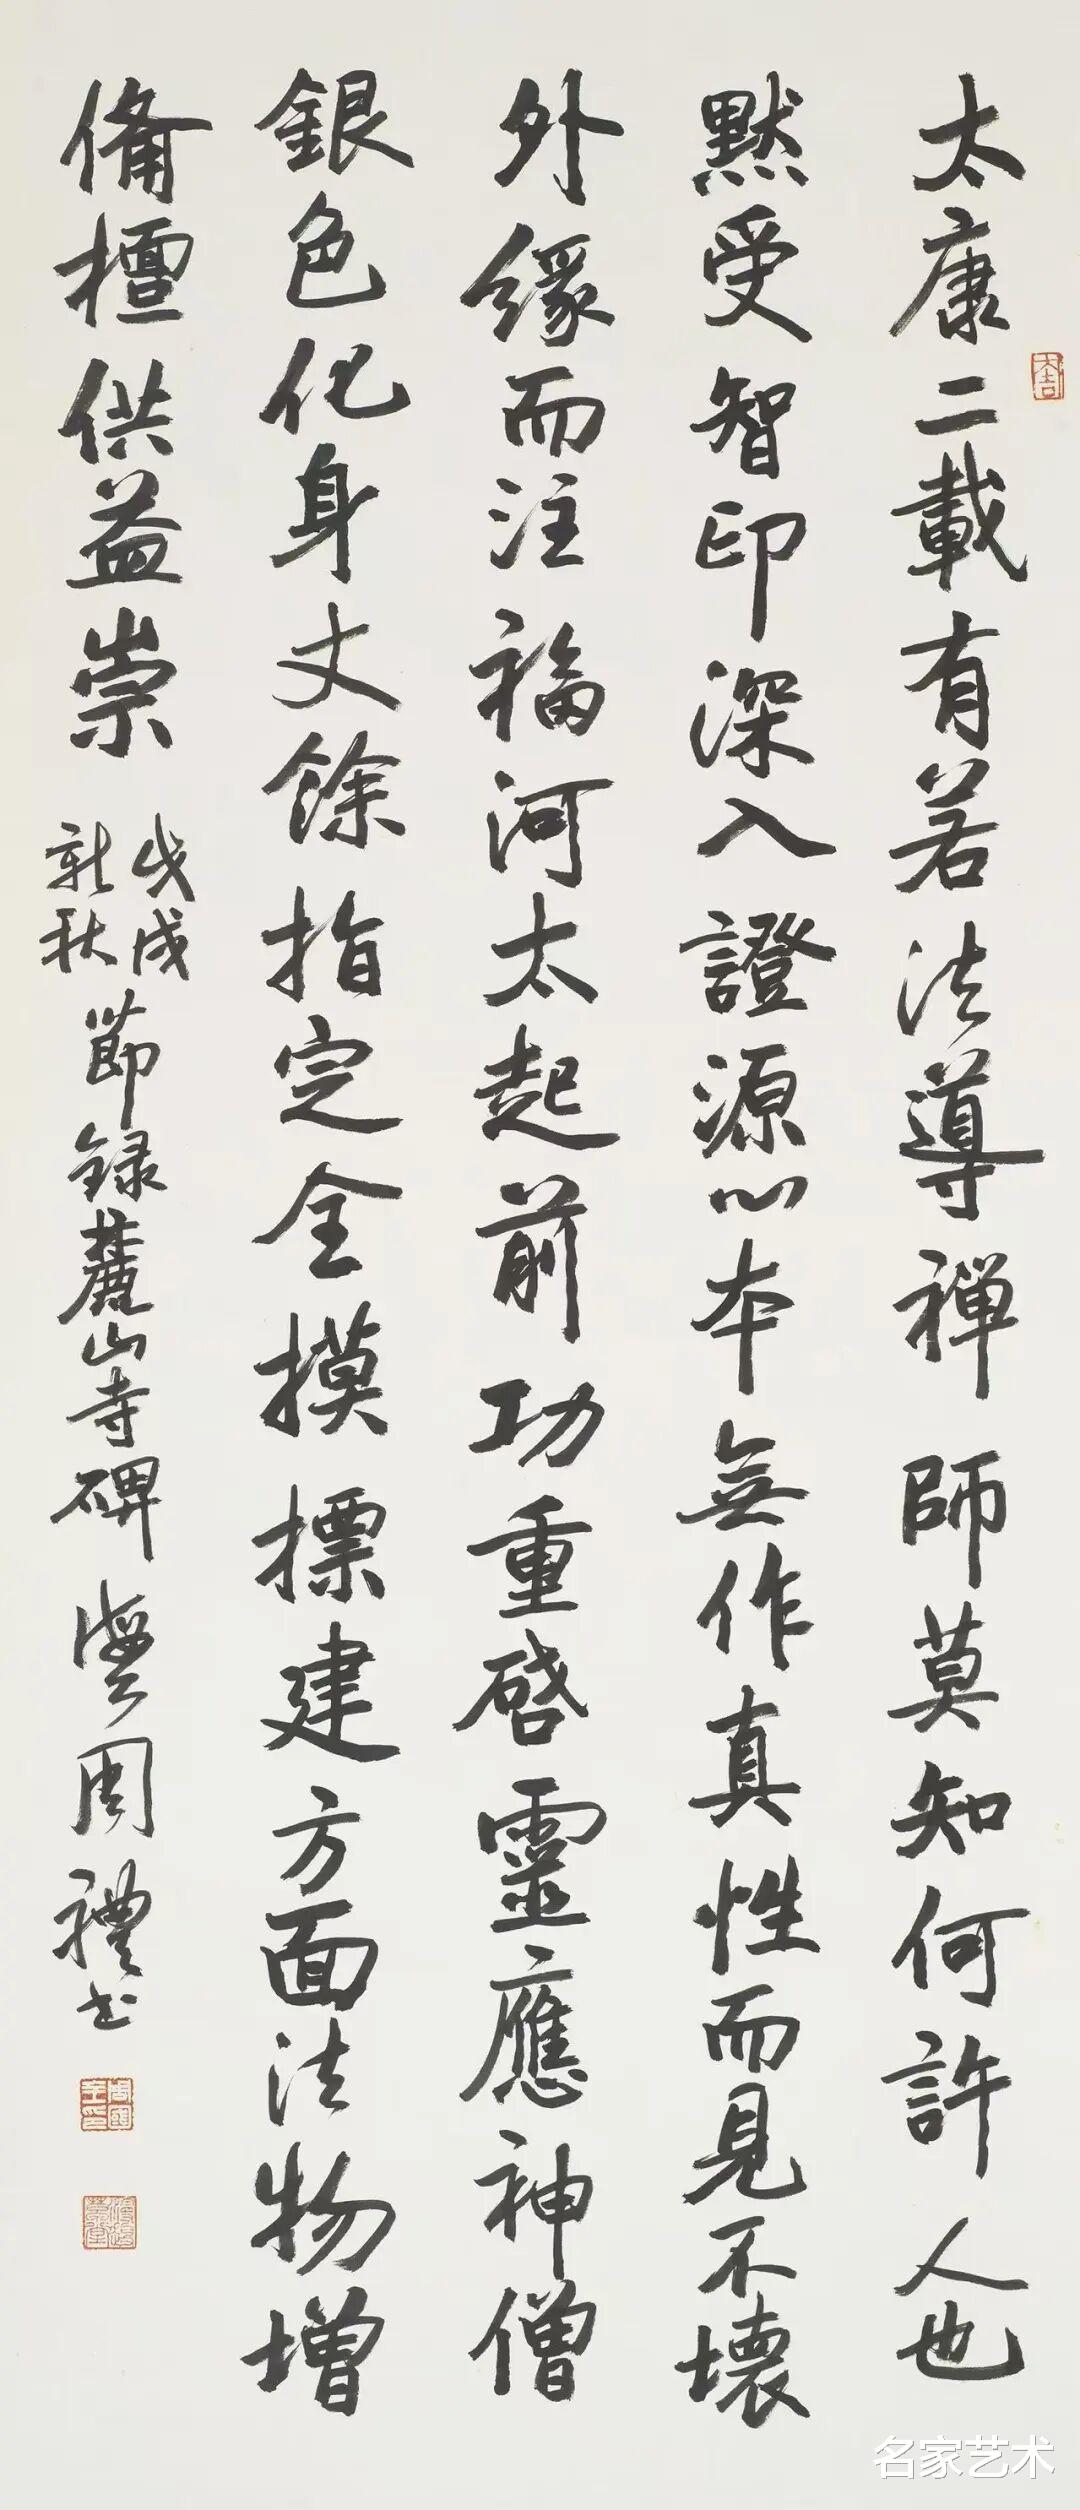 太康二載有若法導禪師莫知何許人也
默受智印深入證源心本無作真性而見不壞
外緣而注福河太起前功重啓靈應神僧
銀色化身丈餘指定全摸標建方面法物增
備檀供益崇
戊戌
新秋
節録麓山寺碑 周禮书
大吉
名家艺术